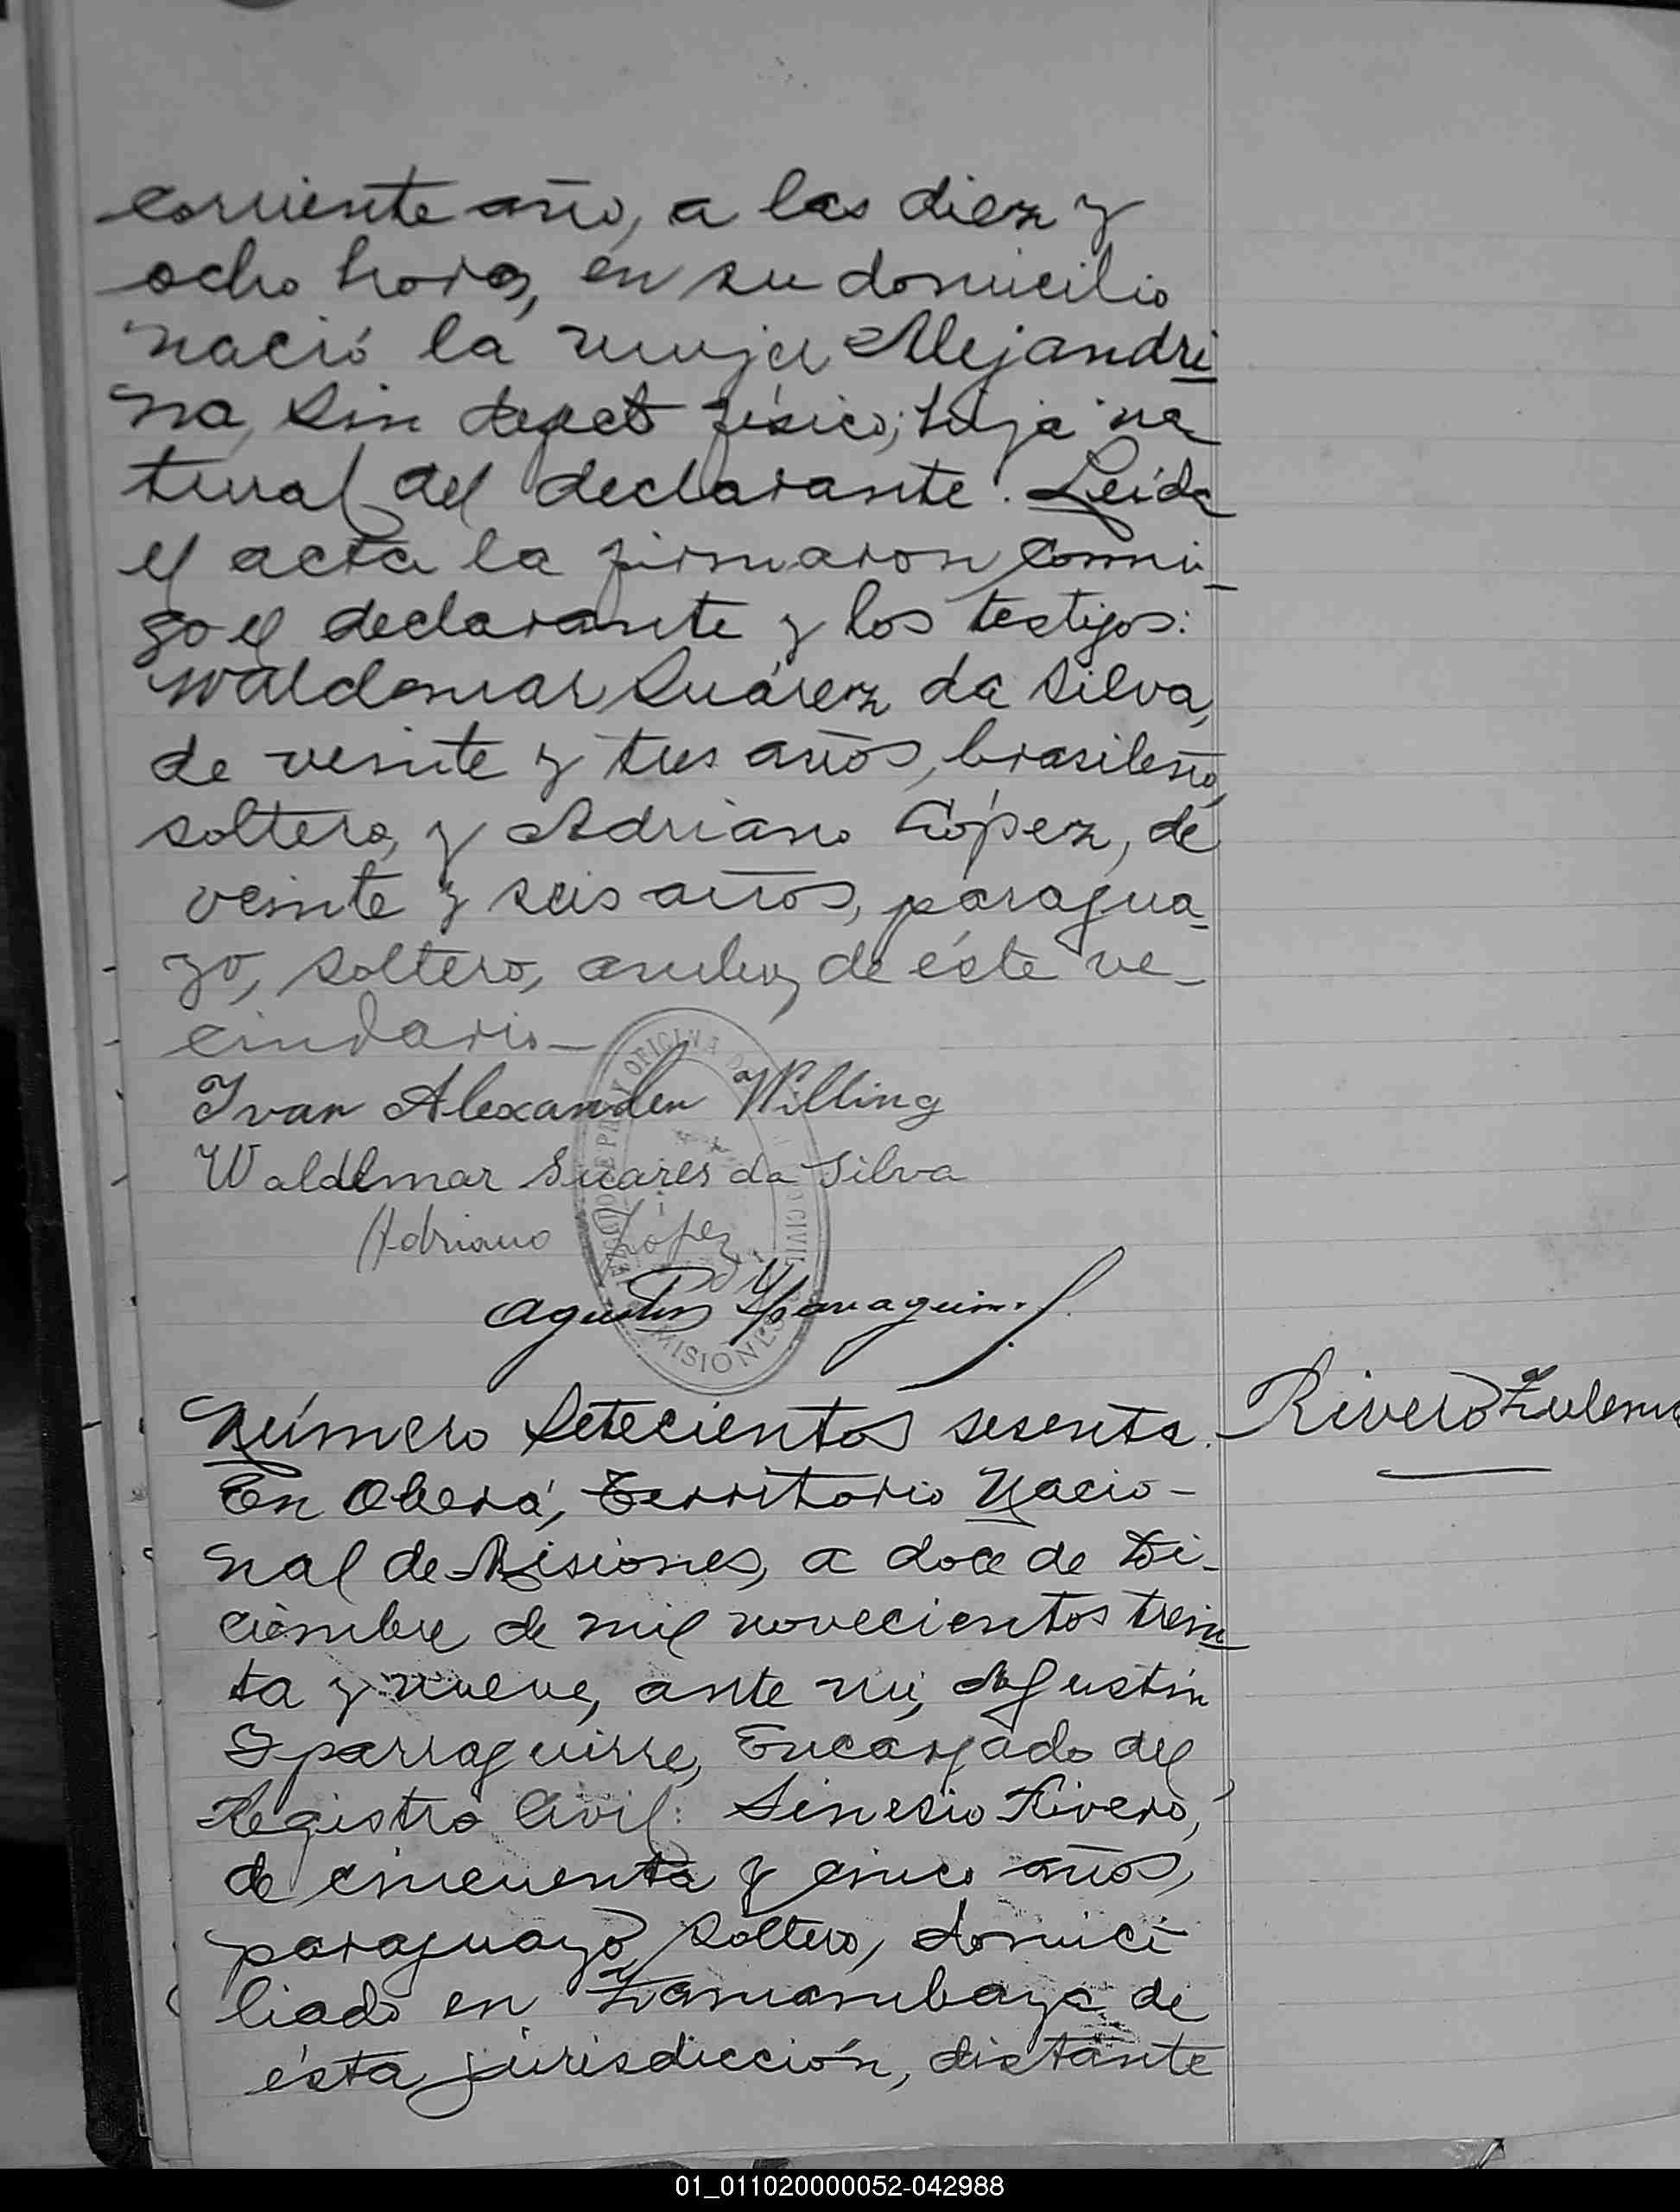 corriente año, a las diez y
ocho horas, en su domicilio
nació la mujer Alejandri
na, sin defecto físico; hija na
tural del declarante. Leída
el acta la firmaron conmi-
go el declarante y los testigos:
Waldemar Suárez da Silva,
de veinte y tres años, brasileño,
soltero, y Adriano López, de
veinte y seis años, paragua-
yo, soltero, ambos de éste ve-
cindario—
Ivan Alexander Willing
Waldemar Suares da Silva
Adriano Lopez
Agustin Yparraguirre
OFICINA CIVIL MISIONES
Número Setecientos sesenta.
Rivero Zulema
En Oberá, Territorio Nacio-
nal de Misiones, a doce de Di-
ciembre de mil novecientos trein
ta y nueve, ante mí, Agustín
Yparraguirre, Encargado del
Registro Civil: Sinesio Rivero,
de cincuenta y cinco años,
paraguayo, soltero, domici
liado en Yamambaya de
ésta jurisdicción, distante
01_011020000052-042988